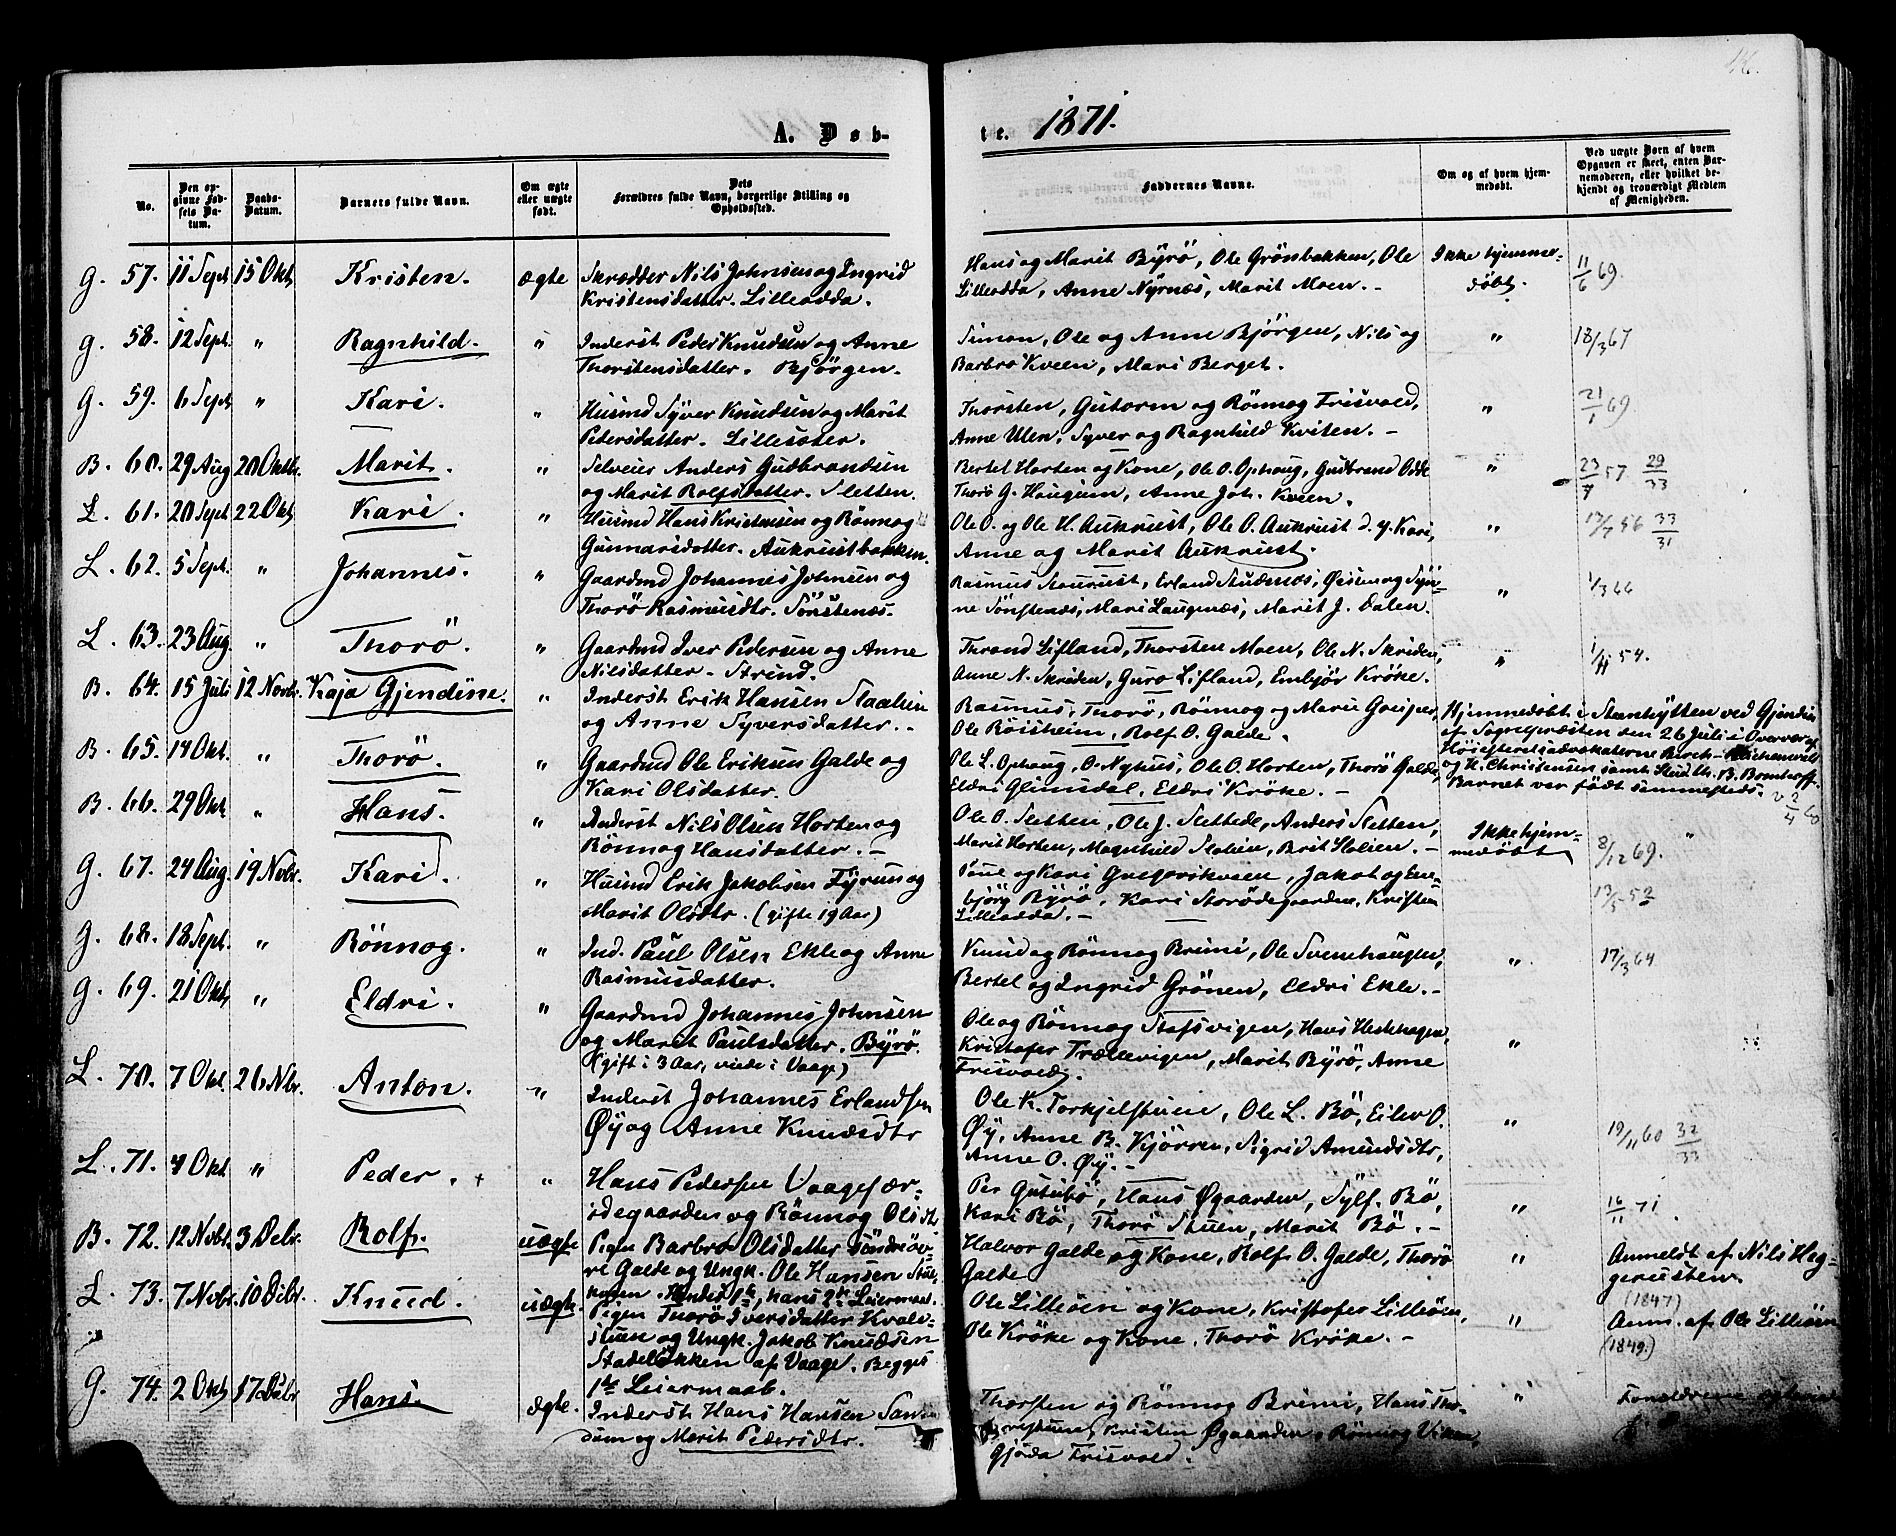 A. Døb-
te. 1871.
No.
Den op-
givne Fød-
sels Da-
tum.
Daabs-
Datum.
Barnets fulde Navn.
Om ægte
eller uægte
født.
Dets
Forældres fulde Navn, borgerlige Stilling og
Opholdssted.
Faddernes Navne.
Om og af hvem hjem-
medøbt.
Ved uægte Børn af hvem
Opgaven er skeet, enten Bar-
nemoderen, eller hvilket be-
kjendt og troværdigt Medlem
af Menigheden.
G. 57. 11 Sept 15 Okt. Kristen. ægte Skrædder Nils Johnsen og Ingrid
Kristensdatter. Lilleodda.
Hans og Marit Byrö, Ole Grönbakken, Ole
Lilleodda, Anne Nyrnæs, Marit Moen. -
Ikke hjemme-
døbt. 11/6 69.
G. 58. 12 Sept. " Ragnhild. " Inderst Peder Knudsen og Anne
Thorstensdatter. Bjørgen.
Simon, Ole og Anne Bjørgen, Nils og
Barbro Kveen, Mari Berget.
" 18/3 67
G. 59. 6 Sept " Kari. " Husmd Syver Knudsen og Marit
Pedersdatter. Lillesæter.
Thorsten, Gutorm og Rönnog Frisvold,
Anne Ulen, Syver og Ragnhild Kviten. -
" 21/1 69.
B. 60. 29 Aug 20 Oktbr. Marit. " Selveier Anders Gudbrandsen
og Marit Rolfsdatter. Sletten.
Bertel Horten og Kone, Ole O. Ophaug, Gudbrand Odde
Thorö G. Haugum, Anne Joh. Kveen.
" 57 29/33
L. 61. 20 Sept 22 Okt Kari. " Husmd Hans Kristensen og Rönnog
Gunnarsdatter. Aukrustbakken.
Ole O. og Ole H. Aukrust, Ole O. Aukrust d. y. Kari,
Anne og Marit Aukrust.
" 56 33/31
L. 62. 5 Sept. " Johannes. " Gaardmd Johannes Johnsen og
Thorö Rasmusdtr. Sörstenæs.
Rasmus Staurust, Erland Stuenæs, Øistein og Syn-
ne Sörstenæs, Mari Laugenæs, Marit J. Dalen.
" 1/3 66
L. 63. 23 Aug. " Thorö. " Gaardmd Iver Pedersen og Anne
Nilsdatter. Strind.
Thrond Lifland, Thorsten Moen, Ole N. Skriden,
Anne N. Skriden, Guro Lifland, Embjör Kröke.
" 1/11 54.
B. 64. 15 Juli 12 Novbr. Kaja Gjendine. " Inderst Erik Hansen Slaalien
og Anne Syversdatter. -
Rasmus, Thorö, Rönnog og Mari Geisper,
Ole Röisheim, Rolf O. Galde.
Hjemmedøbt i Steenhytten ved Gjendin
af Sognepræsten den 26 Juli i Overvær af
Høiesteretsadvokaterne Birch-Reichenwald
og H. Christensen samt Stud. th. B. Bomhoff.
Barnet var født sammesteds.
B. 65. 14 Okt. " Thorö. " Gaardmd Ole Eriksen Galde og
Kari Olsdatter.
Ole L. Ophaug, O. Nyhus, Ole O. Horten, Thorö Galde,
Eldri Glimsdal, Eldri Kröke. -
B. 66. 29 Okt. " Hans. " Inderst Nils Olsen Horten og
Rönnog Hansdatter. -
Ole O. Sletten, Ole J. Slettede, Anders Sletten,
Marit Horten, Magnhild Slalien, Brit Slalien. -
Ikke hjem-
medøbt 8/12 69.
G. 67. 24 Aug. 19 Novbr. Kari. " Husmd Erik Jakobsen Fyrun og
Marit Olsdtr. (gifte 19 Aar)
og Kari Gregorikveen, Jakob og Em-
björg Byrö, Kari Storödegaarden, Kristen
Lilleodda. -
13/5 52
G. 68. 18 Sept. " Rönnog. " Ind. Paul Olsen Ekle og Anne
Rasmusdatter.
Knud og Rönnog Brimi, Ole Svenehaugen,
Bertel og Ingrid Grönen, Eldri Ekle. -
" 17/3 64
G. 69. 21 Okt " Eldri. " Gaardmd Johannes Johnsen
og Marit Paulsdatter. Byrö.
(gift i 3 Aar, viede i Vaage)
Ole og Rönnog Stafsvigen, Hans Hedehagen,
Kristofer Trællevigen, Marit Byrö, Anne
Frisvold.
"
L. 70. 7 Okt. 26 Nbr. Anton. " Inderst Johannes Erlandsen
Øy og Anne Knudsdtr
Ole K. Torkjelstuen, Ole L. Bö, Eilev O.
Øy, Anne B. Kjörren, Sigrid Amundsdtr,
Anne O. Øy. -
" 19/11 60 32/33
L. 71. 4 Okt. " Peder. + " Hans Pedersen Vaagesær-
ødegaarden og Rönnog Olsdtr
Per Gutubö, Hans Øgaarden, Sylf. Bö,
Kari Bö, Thorö Stuen, Marit Bö. -
" 16/11 71
B. 72. 12 Novbr. 3 Debr. Rolf. uægte Pigen Barbro Olsdatter
Galde og Ungk. Ole Hansen
hans 2det Leiermaal.
Halvor Galde og Kone, Rolf O. Galde, Thorö
Galde
" Anmeldt af Nils Heg-
gerusten.
(1847)
L. 73. 7 Novbr. 10 Debr. Knud. uægte. Pigen Thorö Iversdatter Kvale-
stuen og Ungk. Jakob Knudsen
Stadelökken af Vaage. Begges
1ste Leiermaal.
Ole Lilleöen og Kone, Kristofer Lilleöen,
Ole Kröke og Kone, Thorö Kröke. -
" Anm. af Ole Lilleöen
(1849.)
G. 74. 2 Okt 17 Debr Hans. ægte. Inderst Hans Hansen
og Marit Pedersdtr.
Thorsten og Rönnog Brimi, Hans
Kristen Øgaarden, Rönnog
Gjöda Frisvold.
" Forældrene